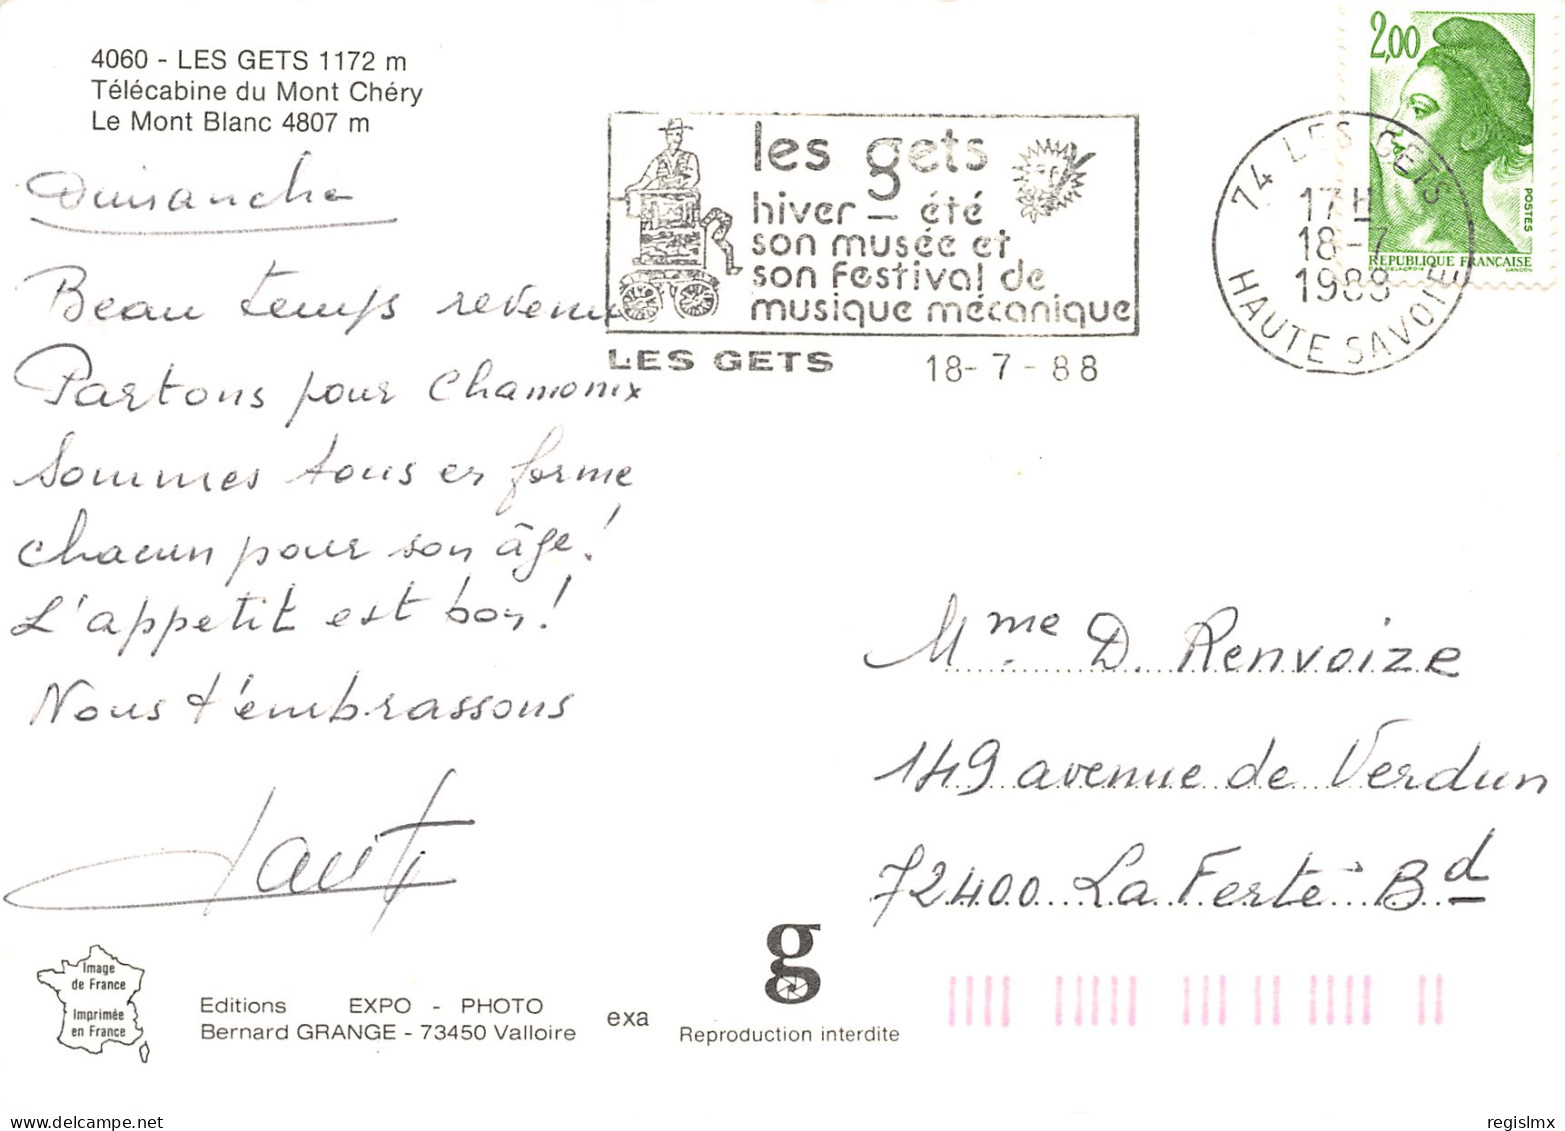 4060 - LES GETS 1172 m
Télécabine du Mont Chéry
Le Mont Blanc 4807 m
Dimanche
Beau temps revenu
Partons pour Chamonix
Sommes tous en forme
chacun pour son âge!
L'appetit est bon!
Nous t'embrassons
les gets
hiver — été
son musée et
son festival de
musique mécanique
LES GETS 18-7-88
74 LES GETS
17H
18-7
1988
HAUTE SAVOIE
2,00
POSTES
REPUBLIQUE FRANÇAISE
DELACROIX GANDON
Mme D. Renvoize
149 avenue de Verdun
72400 La Ferté Bd
Image
de France
Imprimée
en France
Editions EXPO - PHOTO
Bernard GRANGE - 73450 Valloire
exa
g
Reproduction interdite
regislmx